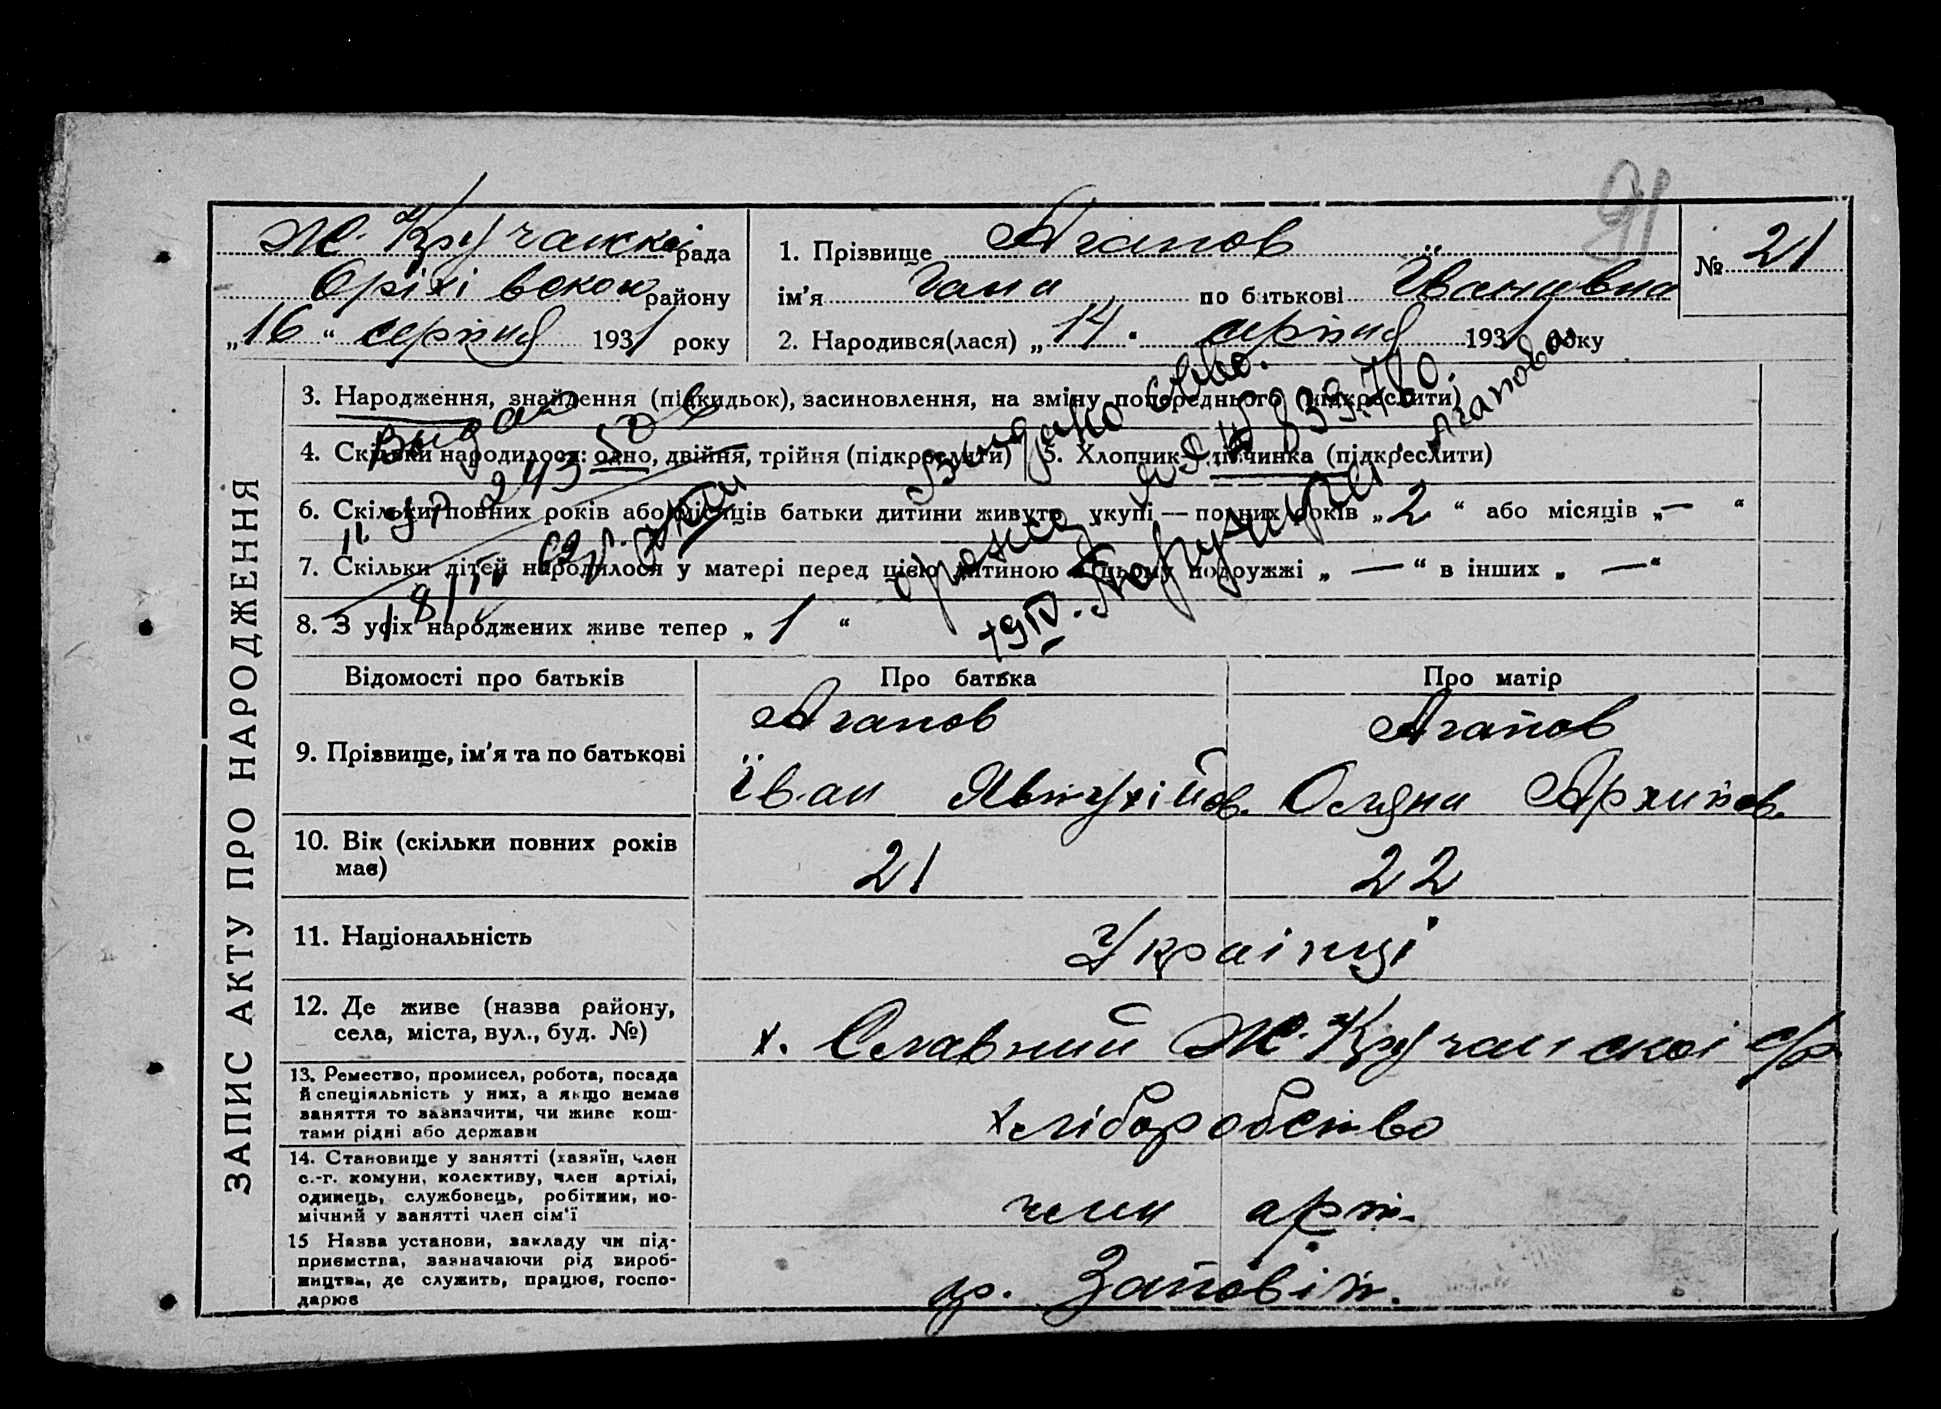 91
М. Кручанскі рада
Оріхівскою району
„16“ серпня 1931 року
1. Прізвище Агапов
№ 21
ім'я Гана по батькові Івановна
2. Народився(лася) „14“ серпня 1931 року
ЗАПИС АКТУ ПРО НАРОДЖЕННЯ
3. Народження, знайдення (підкидьок), засиновлення, на зміну попереднього (підкреслити)
4. Скільки народилося: одно, двійня, трійня (підкреслити) 5. Хлопчик—дівчинка (підкреслити)
6. Скільки повних років або місяців батьки дитини живуть укупі — повних років „2“ або місяців „—“
7. Скільки дітей народилося у матері перед цією дитиною в цьому подружжі „—“ в інших „—“
8. З усіх народжених живе тепер „1“
Видано
Агапова
Відомості про батьків Про батька Про матір
9. Прізвище, ім'я та по батькові
Агапов Агапов
Іван Явтухійов. Оляна Архипов.
10. Вік (скільки повних років має) 21 22
11. Національність Українці
12. Де живе (назва району, села, міста, вул., буд. №)
х. Славний М. Кручанскоі с/р
13. Ремество, промисел, робота, посада
й спеціяльність у них, а якщо немає
заняття то зазначити, чи живе кош-
тами рідні або держави
хліборобство
14. Становище у занятті (хазяїн, член
с.-г. комуни, колективу, член артілі,
одинець, службовець, робітник, по-
мічний у занятті член сім'ї
член арт.
15 Назва установи, закладу чи під-
приємства, зазначаючи рід вироб-
ництва, де служить, працює, госпо-
дарює
ар. Заповіт.